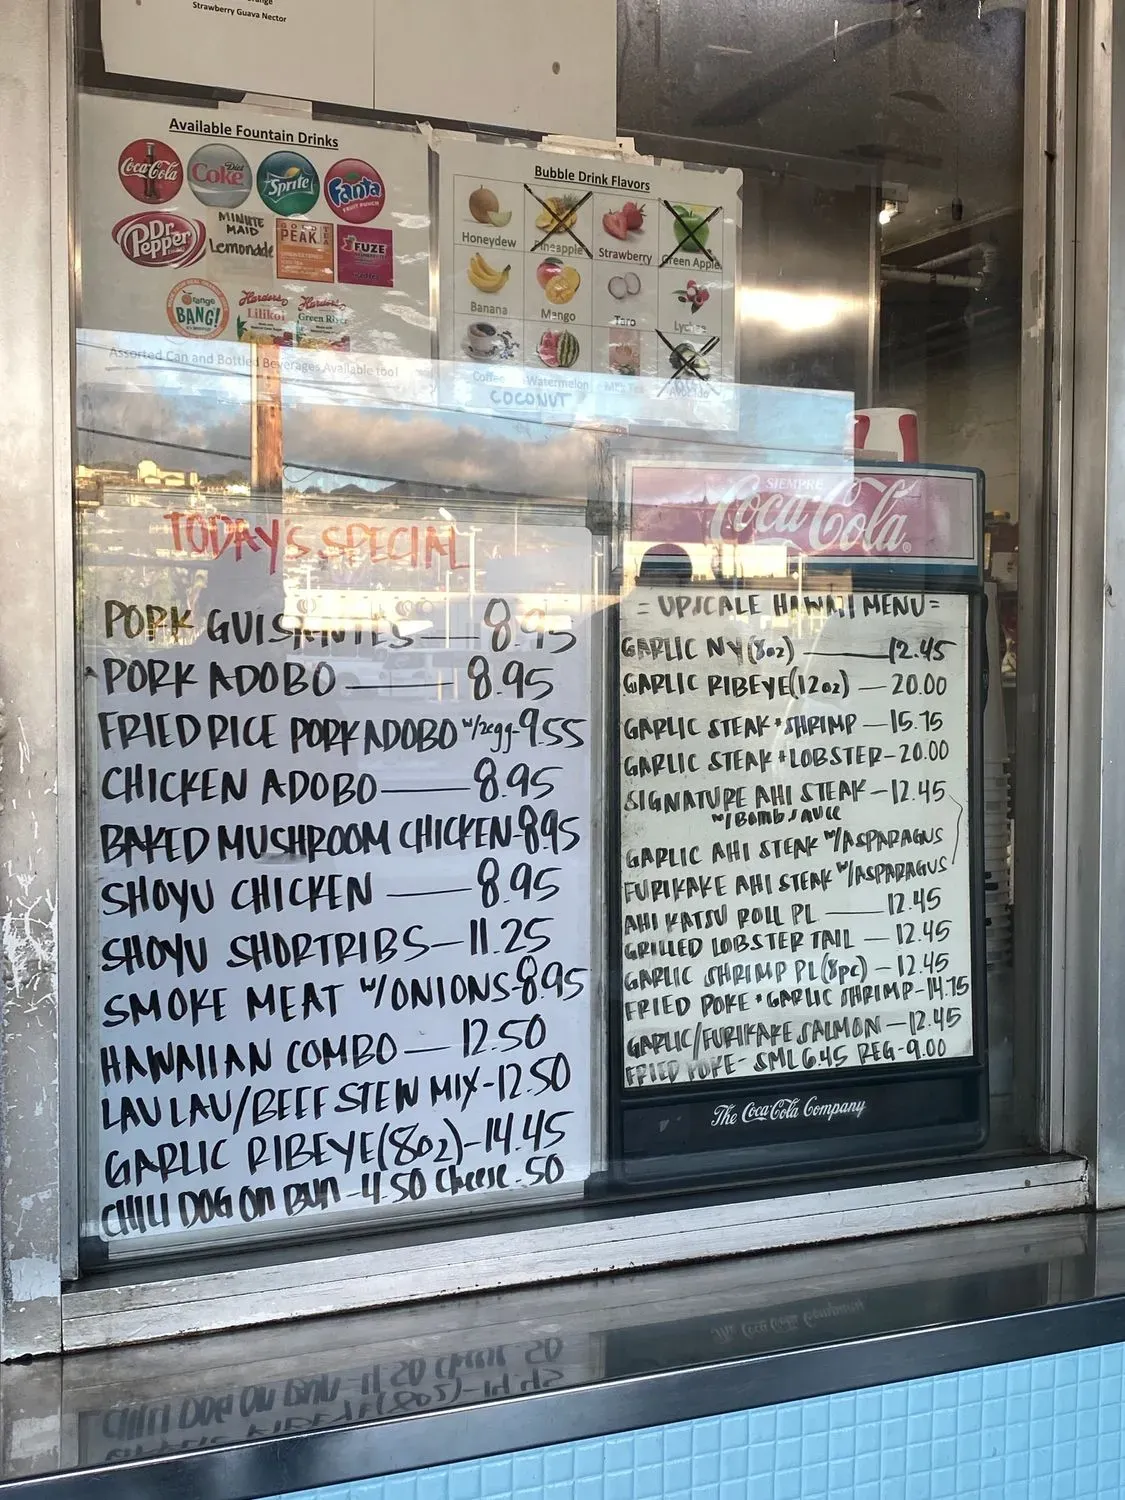 Strawberry Guava Nector
Available Fountain Drinks
Coca-Cola
Diet Coke
Sprite
Fanta
FRUIT PUNCH
Dr Pepper
MINUTE
MAID
Lemonade
GOLD
PEAK
TEA
FUZE
Orange
BANG!
Harders
Lilikoi
Harders
Green River
Assorted Can and Bottled Beverages Available too!
Bubble Drink Flavors
Honeydew
Pineapple
Strawberry
Green Apple
Banana
Mango
Taro
Lychee
Coffee
Watermelon
Milk Tea
Avocado
COCONUT
TODAY'S SPECIAL
PORK GUISANTES — 8.95
PORK ADOBO — 8.95
FRIED RICE PORK ADOBO w/2egg - 9.55
CHICKEN ADOBO — 8.95
BAKED MUSHROOM CHICKEN - 8.95
SHOYU CHICKEN — 8.95
SHOYU SHORTRIBS — 11.25
SMOKE MEAT w/ONIONS - 8.95
HAWAIIAN COMBO — 12.50
LAU LAU/BEEF STEW MIX - 12.50
GARLIC RIBEYE (8oz) - 14.45
CHILI DOG ON BUN - 4.50 Cheese .50
SIEMPRE
Coca-Cola
= UPSCALE HAWAII MENU =
GARLIC NY (8oz) — 12.45
GARLIC RIBEYE (12oz) — 20.00
GARLIC STEAK + SHRIMP — 15.75
GARLIC STEAK + LOBSTER - 20.00
SIGNATURE AHI STEAK - 12.45
w/BOMB SAUCE
GARLIC AHI STEAK w/ASPARAGUS
FURIKAKE AHI STEAK w/ASPARAGUS
AHI KATSU ROLL PL — 12.45
GRILLED LOBSTER TAIL — 12.45
GARLIC SHRIMP PL (8pc) - 12.45
FRIED POKE + GARLIC SHRIMP - 14.75
GARLIC/FURIKAKE SALMON — 12.45
FRIED POKE - SML 6.45 REG - 9.00
The Coca-Cola Company